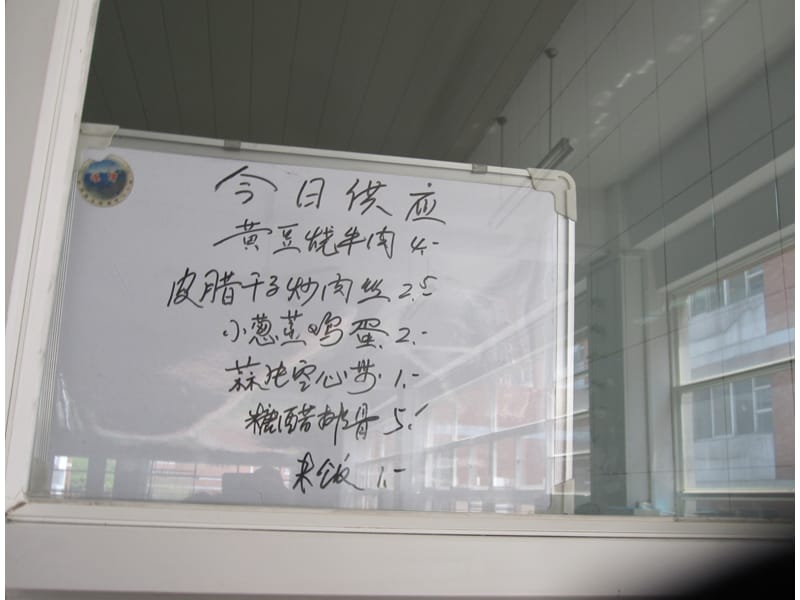 今日供应
黄豆烧牛肉 4.-
皮腊干子炒肉丝 2.5
小葱蒸鸡蛋 2.-
蒜茸空心菜 1.-
糖醋排骨 5.-
米饭 1.-